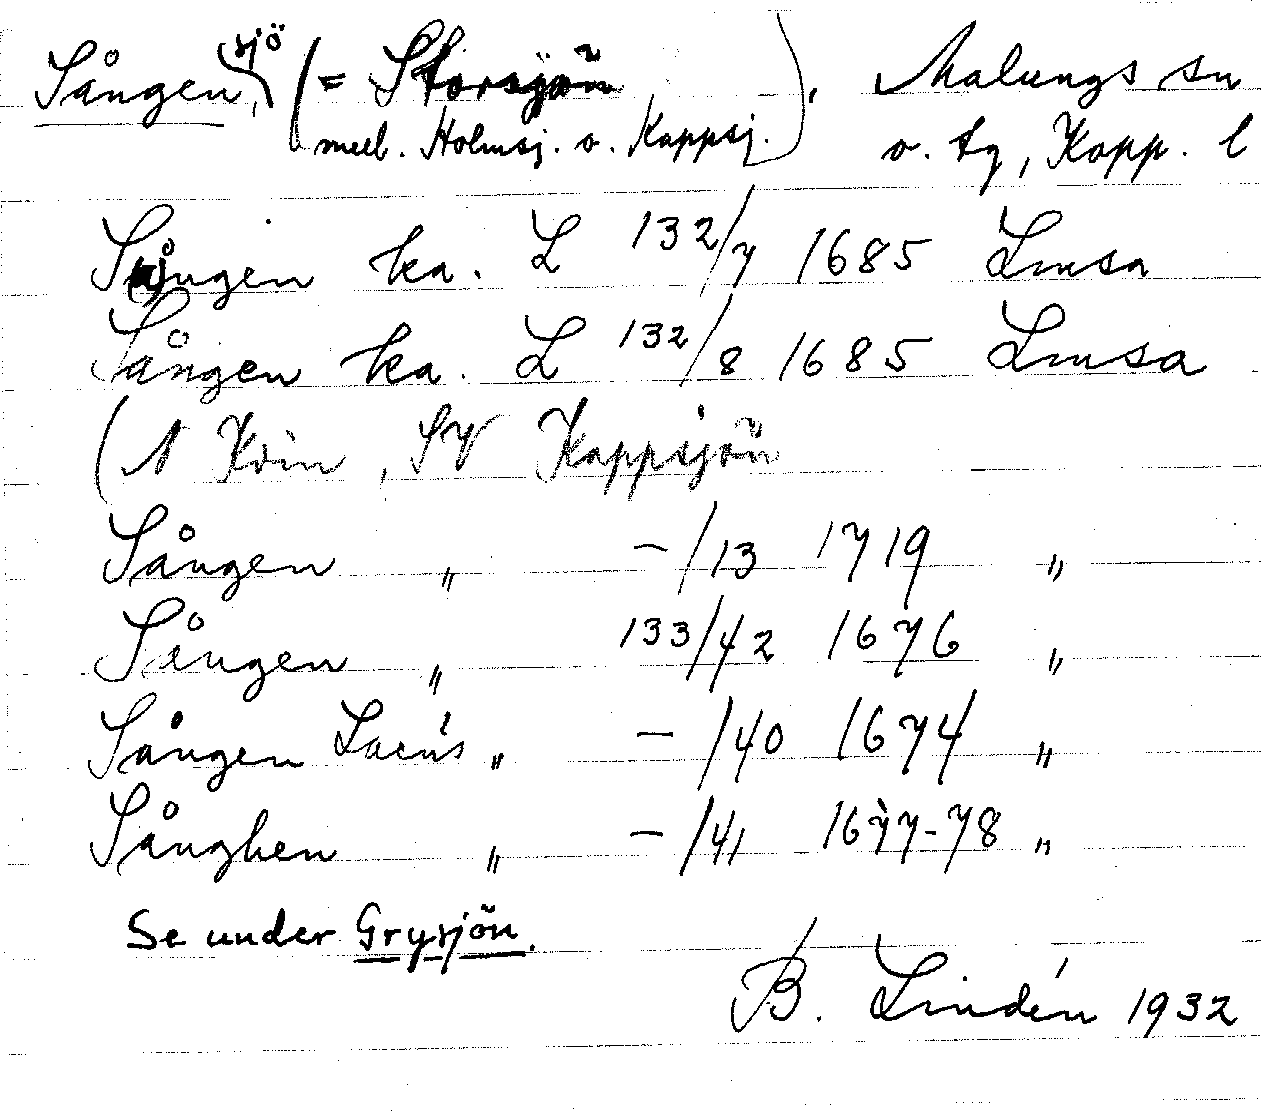 Sången, sjö (= Storsjön), Malungs sn
mell. Holmsj. o. Kappsj. o. tg, Kopp. l
Sången ka. L 132/7 1685 Lmsa
Sången ka. L 132/8 1685 Lmsa
(N Kvin, SV Kappsjön
Sången „ -/13 1719 „
Sången „ 133/42 1676 „
Sången Lacus „ -/40 1674 „
Sånghen „ -/41 1677-78 „
Se under Grysjön.
B. Lindén 1932